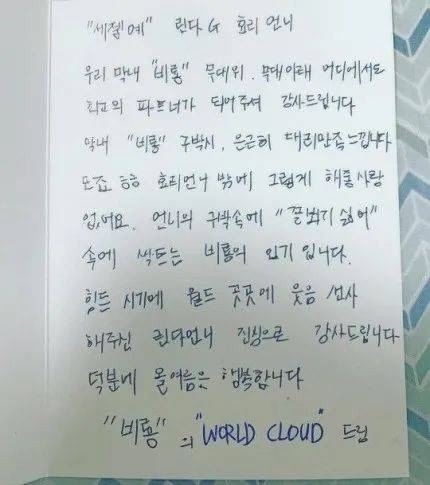 "세젤예" 린다G 효리 언니
우리 막내 "비룡" 무대위. 무대아래 어디에서도
최고의 파트너가 되어주셔 감사드립니다
막내 "비룡" 구박시, 은근히 대리만족느낍니다
또죠 흠흠 효리언니 밖에 그렇게 해줄사람
없어요. 언니의 구박속에 "꼴뵈기 싫어"
속에 싹트는 비룡의 인기 입니다.
힘든 시기에 월드 곳곳에 웃음 선사
해주신 린다언니 진심으로 감사드립니다
덕분에 올여름은 행복합니다
"비룡" 의 "WORLD CLOUD" 드림